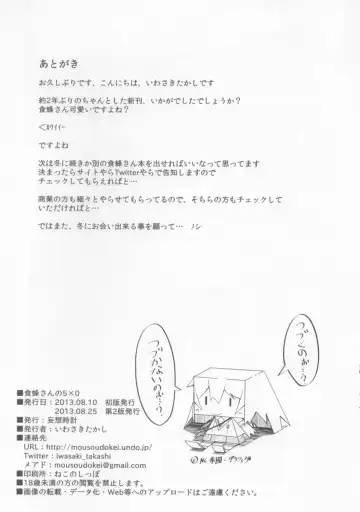 あとがき
お久しぶりです、こんにちは、いわさきたかしです
約2年ぶりのちゃんとした新刊、いかがでしたでしょうか？
食蜂さん可愛いですよね？
<ｶﾜｲｲｰ
ですよね
次は冬に続きか別の食蜂さん本を出せればいいなって思ってます
決まったらサイトやらTwitterやらで告知しますので
チェックしてもらえればと…
商業の方も細々とやらせてもらってるので、そちらの方もチェックして
いただければと…
ではまた、冬にお会い出来る事を願って… ﾉｼ
つづくのか…!?
つづかないのか…!?
■食蜂さんの5×0
■発行日：2013.08.10　初版発行
2013.08.25　第2版発行
■発行：妄想時計
■発行者：いわさきたかし
■連絡先
http://mousoudokei.undo.jp/
Twitter：iwasaki_takashi
メアド：mousoudokei@gmail.com
■印刷所：ねこのしっぽ
■18歳未満の方の閲覧を禁止します。
■画像の転載・データ化・Web等へのアップロードはご遠慮ください。